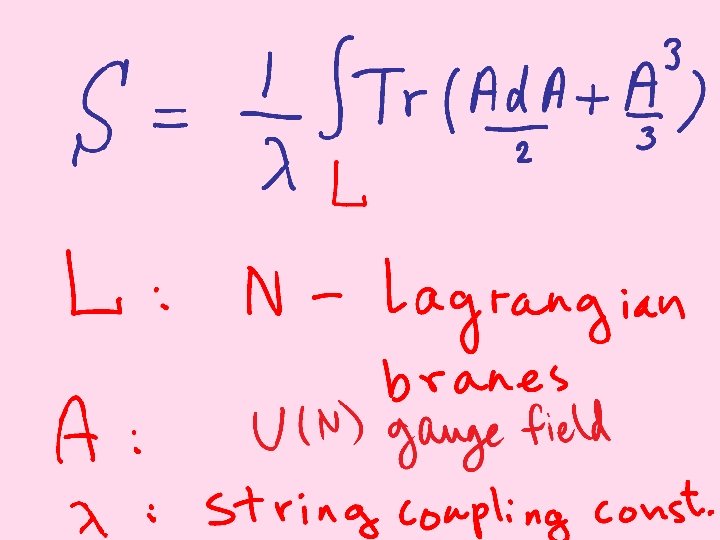 S = 1/λ ∫_L Tr(AdA/2 + A³/3)
L: N - Lagrangian
branes
A: U(N) gauge field
λ: string coupling const.